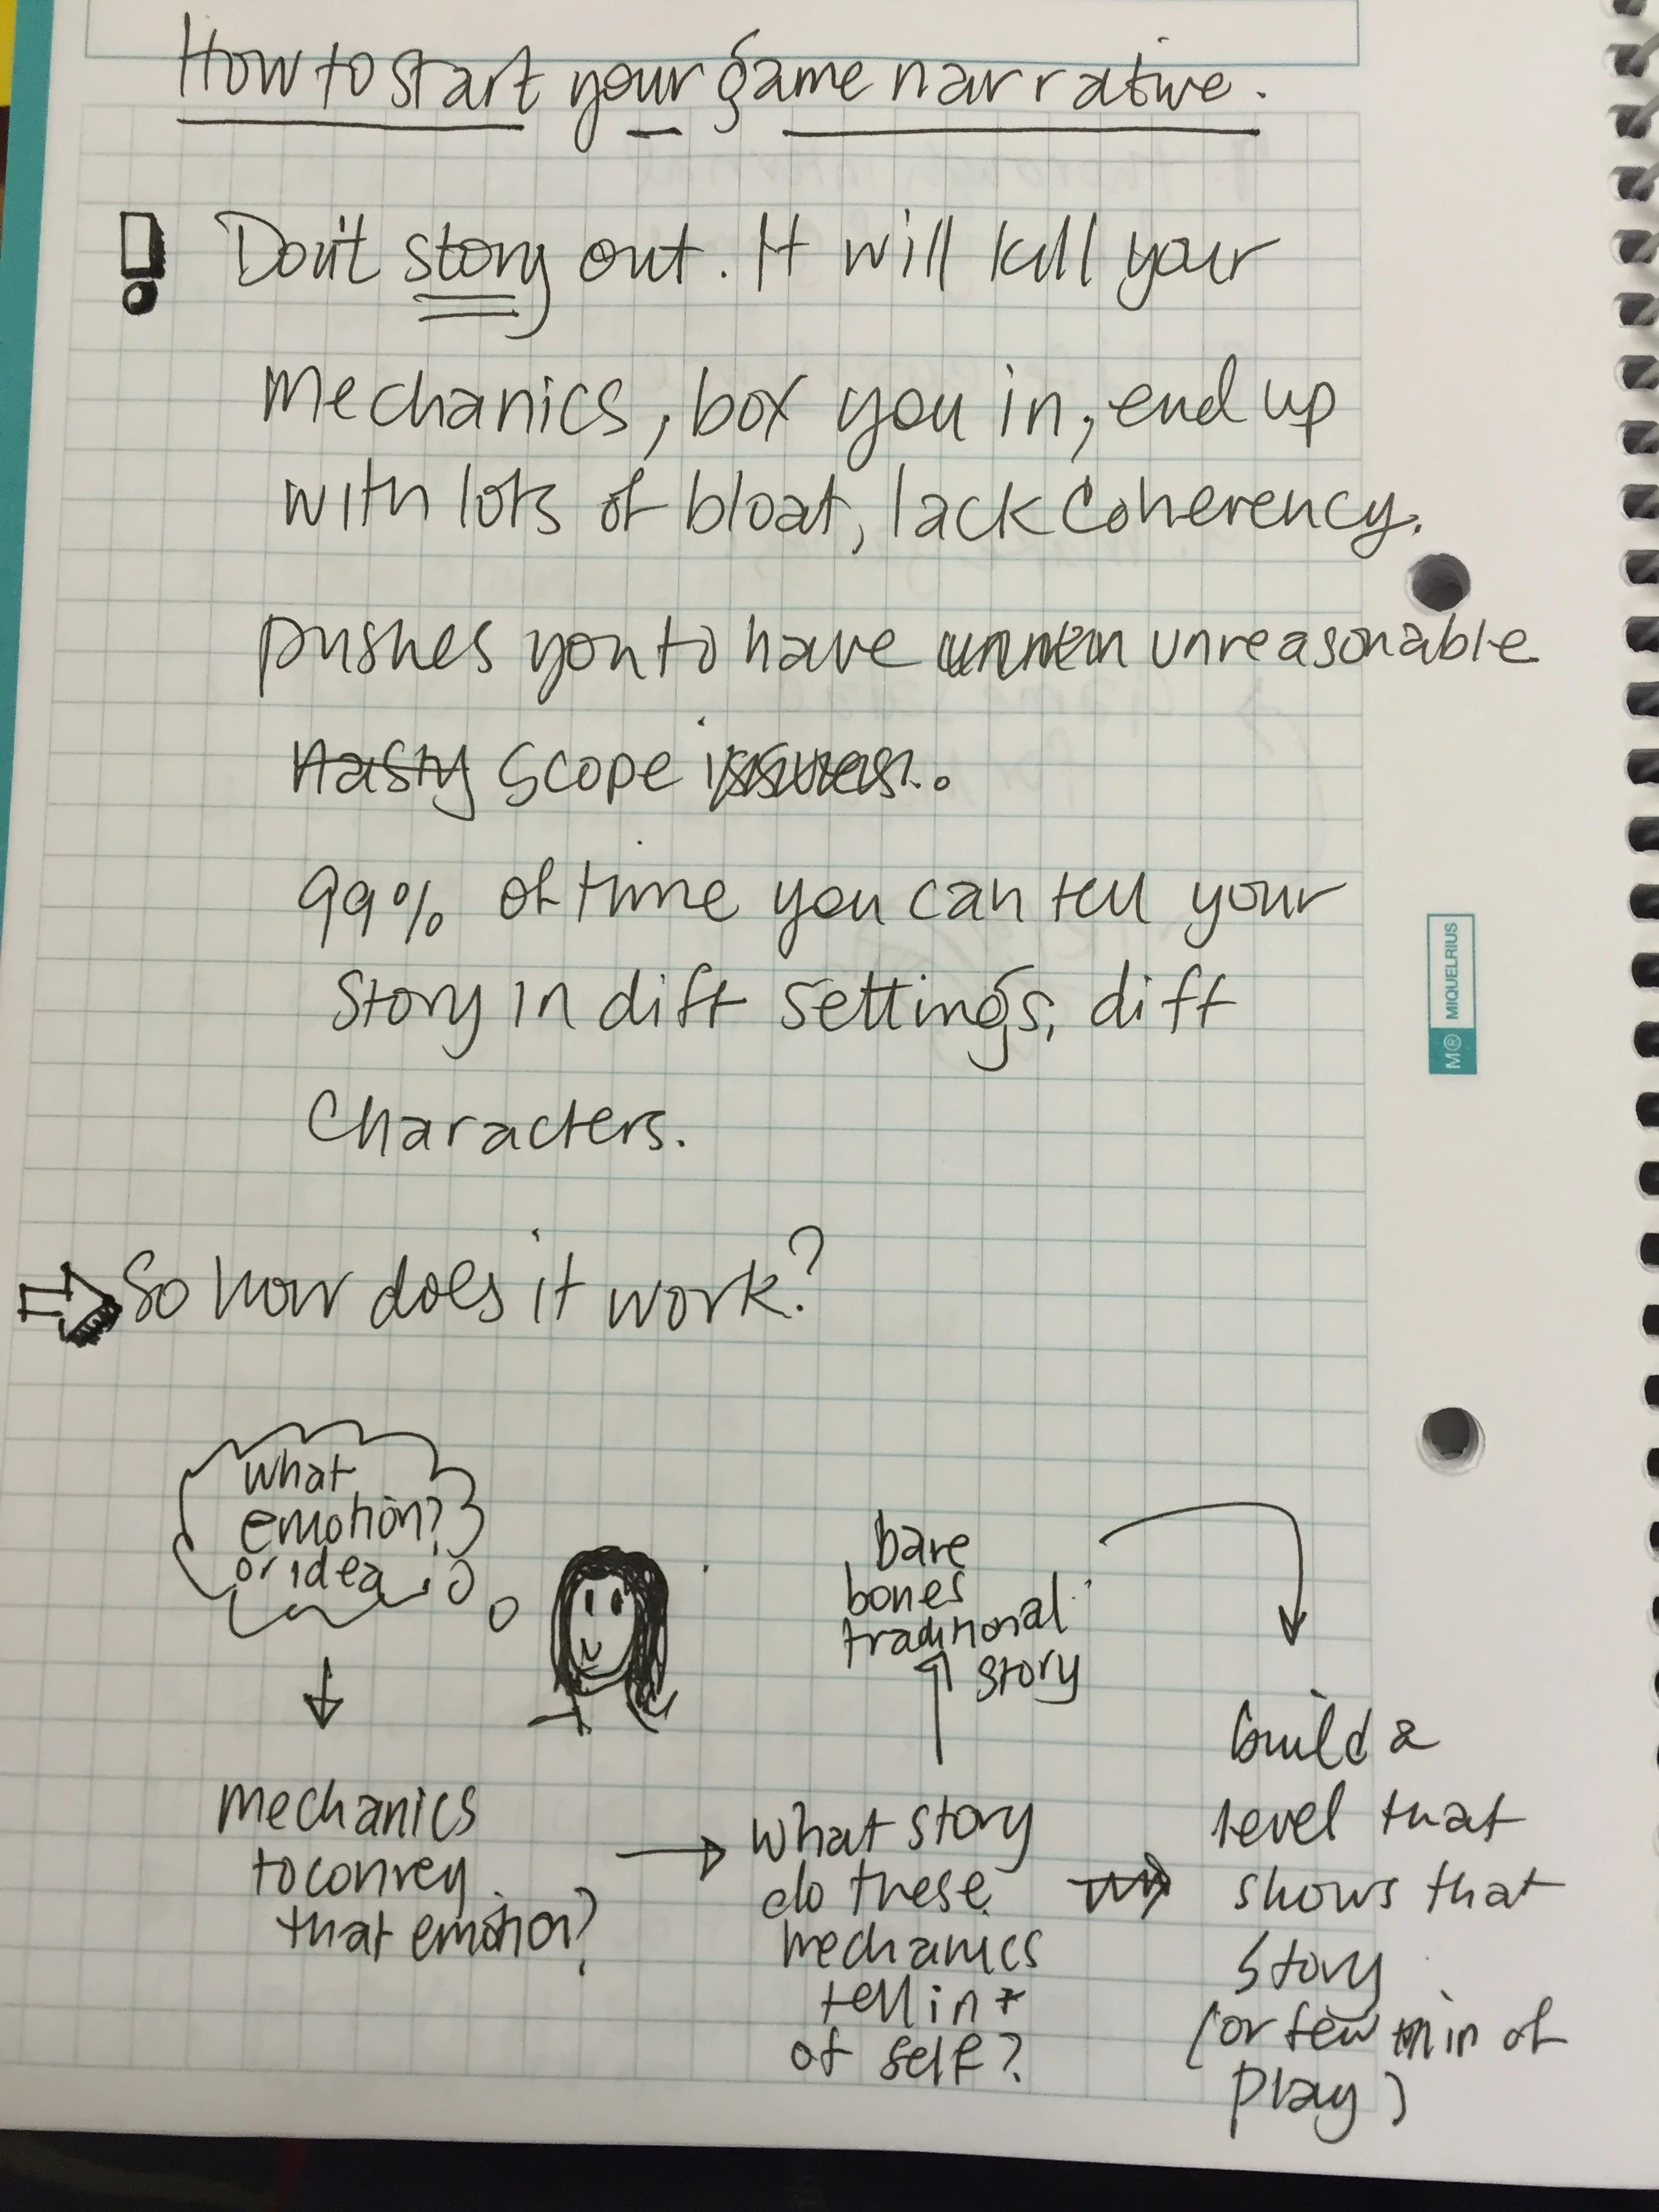 How to start your game narrative.
! Don't story out. It will kill your
mechanics, box you in, end up
with lots of bloat, lack coherency.
pushes you to have unreasonable
nasty scope issues.
99% of time you can tell your
story in diff settings, diff
characters.
So how does it work?
what
emotion?
or idea
mechanics
to convey
that emotion?
what story
do these
mechanics
tell in +
of self?
bare
bones
traditional
story
build a
level that
shows that
story
(or few min of
play)
M® MIQUELRIUS